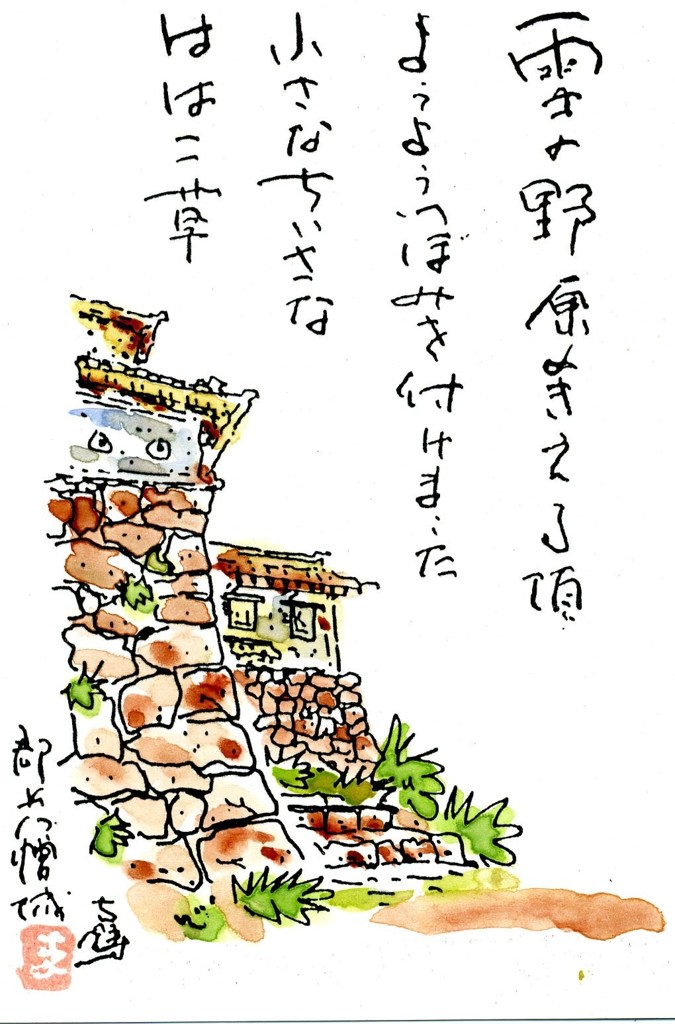 雪の野原きえる頃
ようようつぼみを付けました
小さなちいさな
ははこ草
郡上八幡城